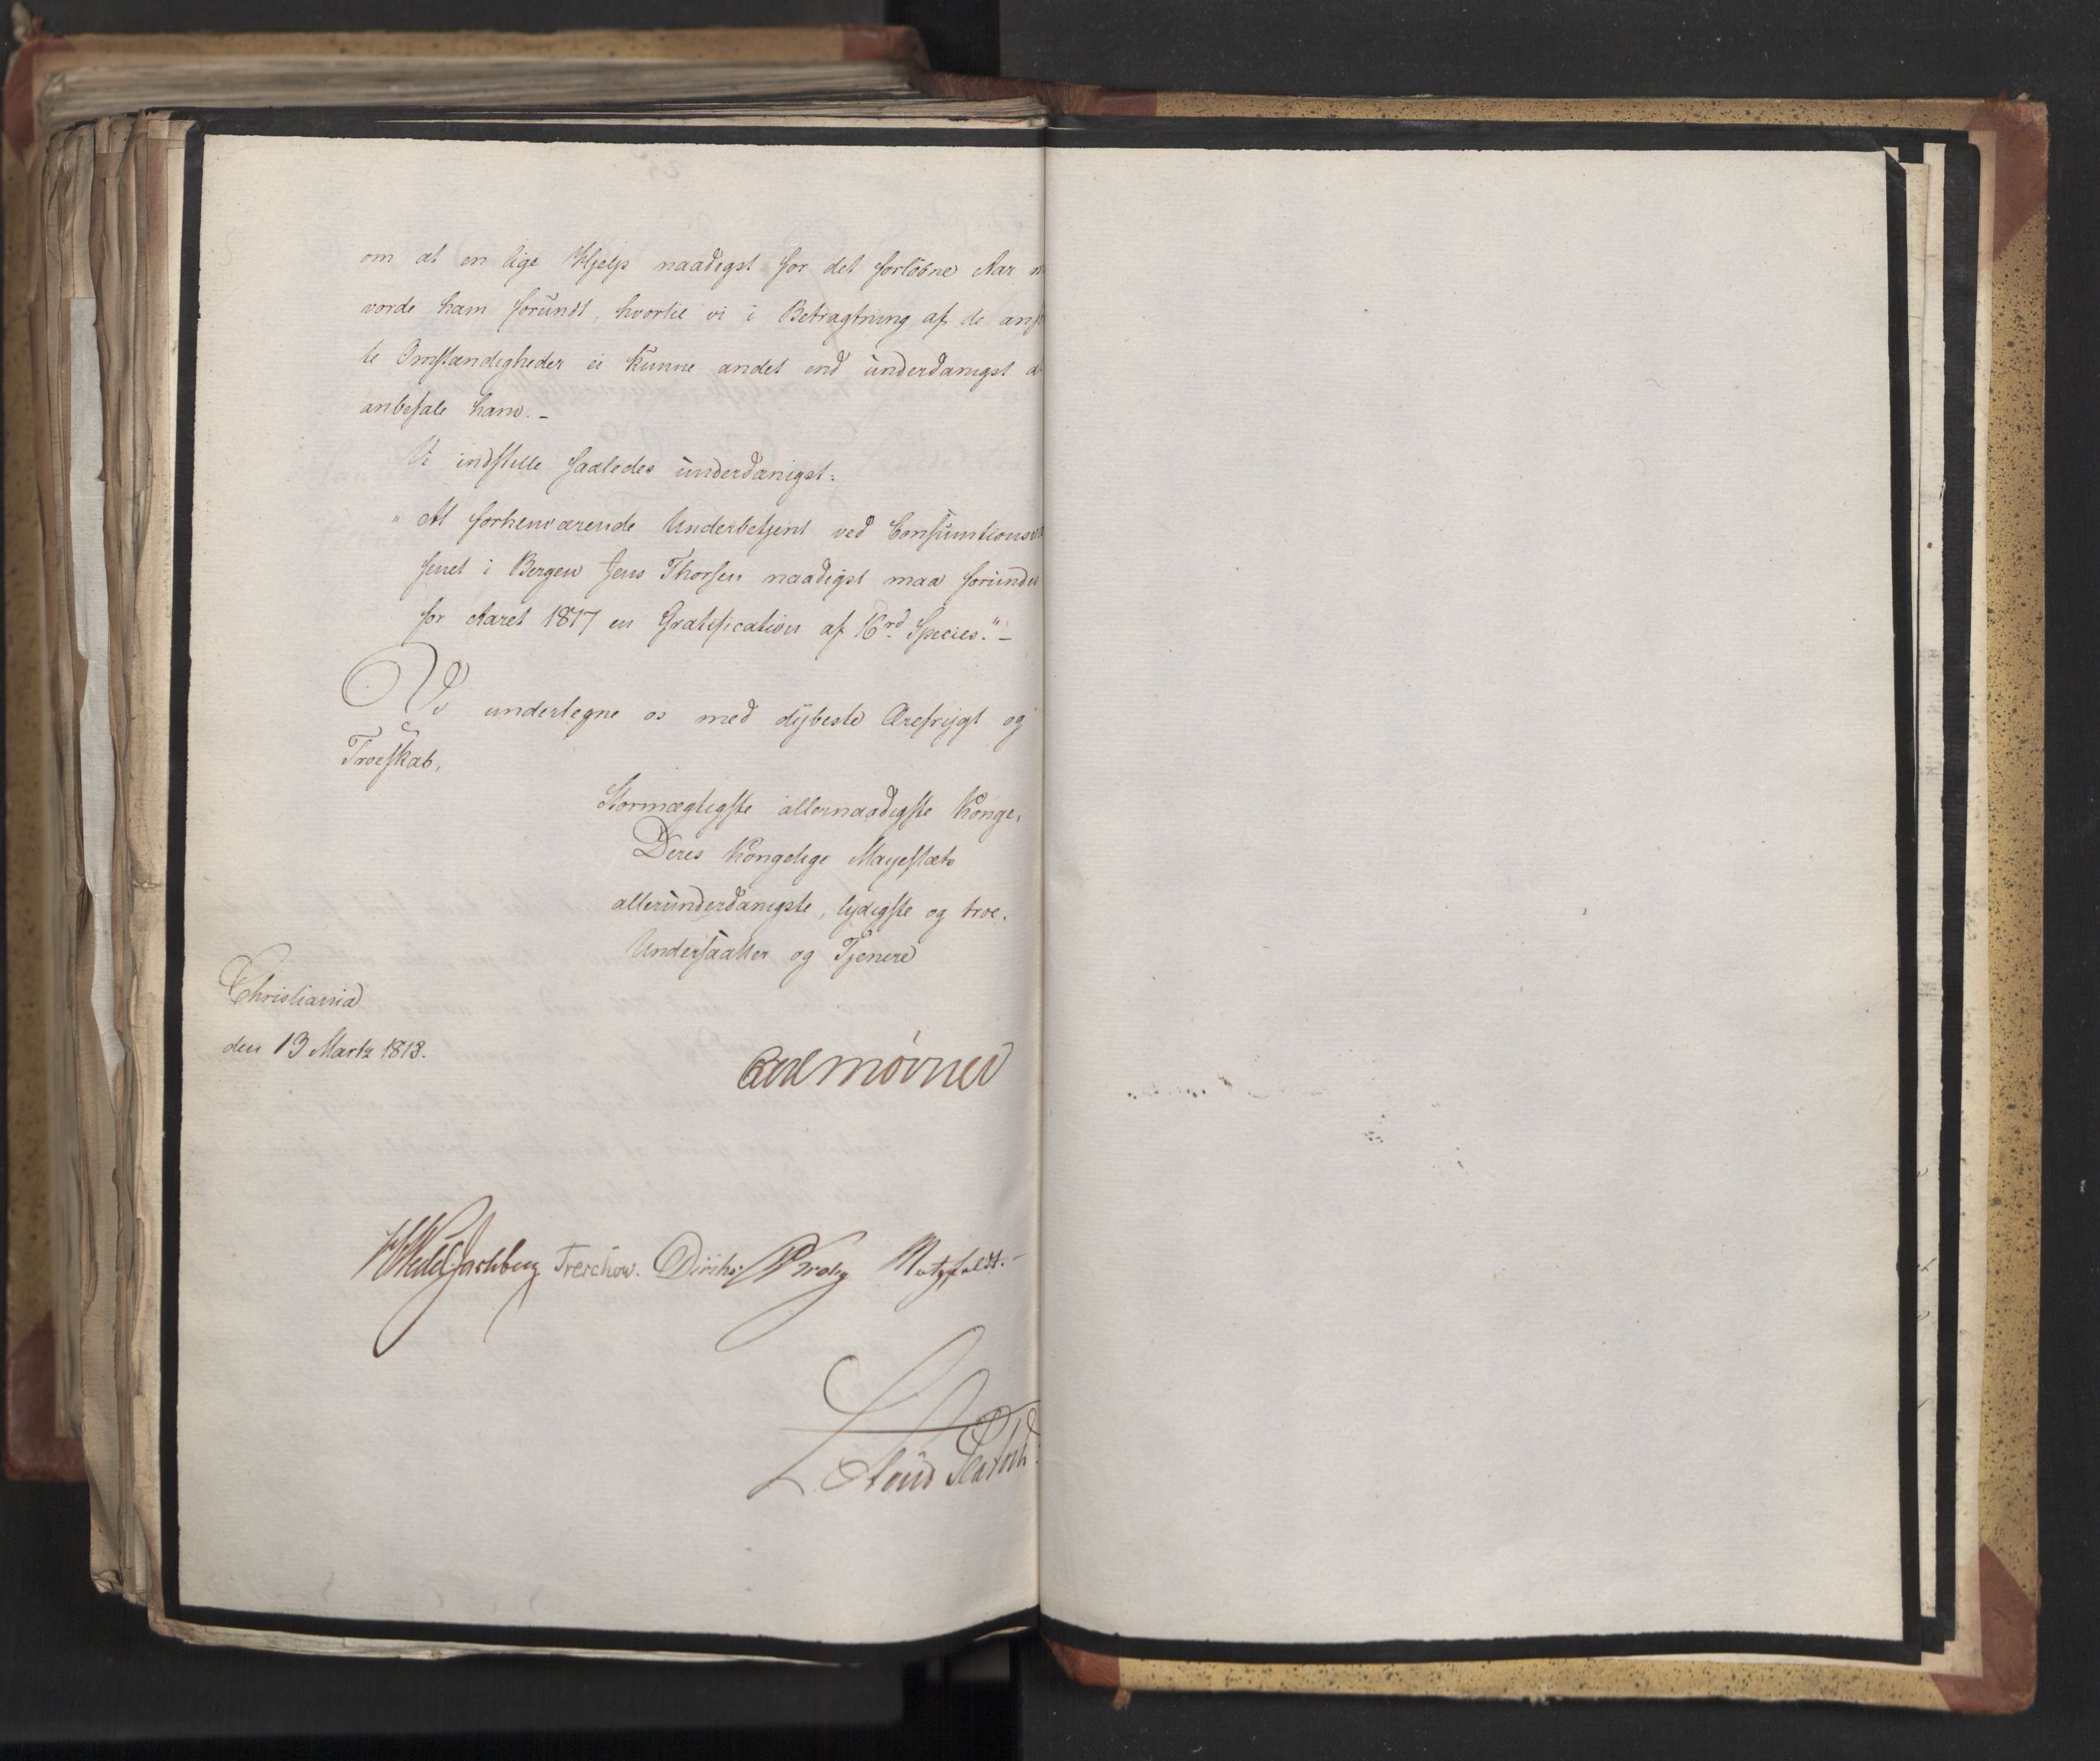 om at en lige Hjelp naadigst for det forløbne Aar
vorde ham forundt, hvortil vi i Betragtning af de
te Omstændigheder ei kunne andet end underdanigst
anbefale ham. –
Vi indstille saaledes underdanigst:
"At forhenværende Underbetjent ved
senet i Bergen Jens Thorsen naadigst maa forundes
for Aaret 1817 en Gratification af 16 rd. Species." –
Vi undertegne os med dybeste Ærefrygt og
Troeskab,
Stormægtigste allernaadigste Konge,
Deres Kongelige Mayestæts
allerunderdanigste, lydigste og troe
Undersaatter og Tjenere
Christiania
den 13 Martz 1818.
Carl Mörner
HWedelJarlsberg Treschow. Diriks Krohg Motzfeldt.